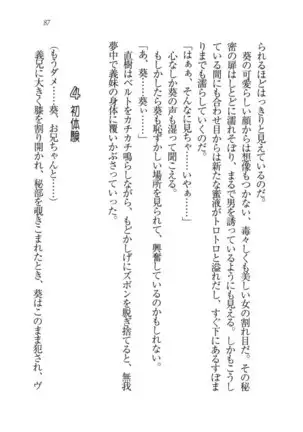 87
られるほどはっきりと見えているのだ。
葵の可愛らしい顔からは想像もつかない、毒々しくも美しい女の割れ目だ。その秘
密の扉はしとどに濡れそぼり、まるで男を誘っているようにも見える。しかもこうし
ているあいだにも、膣口からは新たな蜜液がトロトロと溢れだし、すぐ下にあるすぼま
りまでも濡らしていくのだ。
「はぁぁ、そんなに見ちゃ……いやぁ……」
心なしか葵の声も湿って聞こえる。
もしかしたら葵も恥ずかしい場所を見られて、興奮しているのかもしれない。
「あ、葵……葵ぃ……」
直樹はベルトをカチカチ鳴らしながら、もどかしげにズボンを脱ぎ捨てると、無我
夢中で義妹の身体に覆いかぶさっていった。
4 初体験
(もうダメ……葵、お兄ちゃんと……)
義兄に大きく膝を割り開かれ、秘部を覗きこまれたとき、葵はこのまま犯され、ヴ